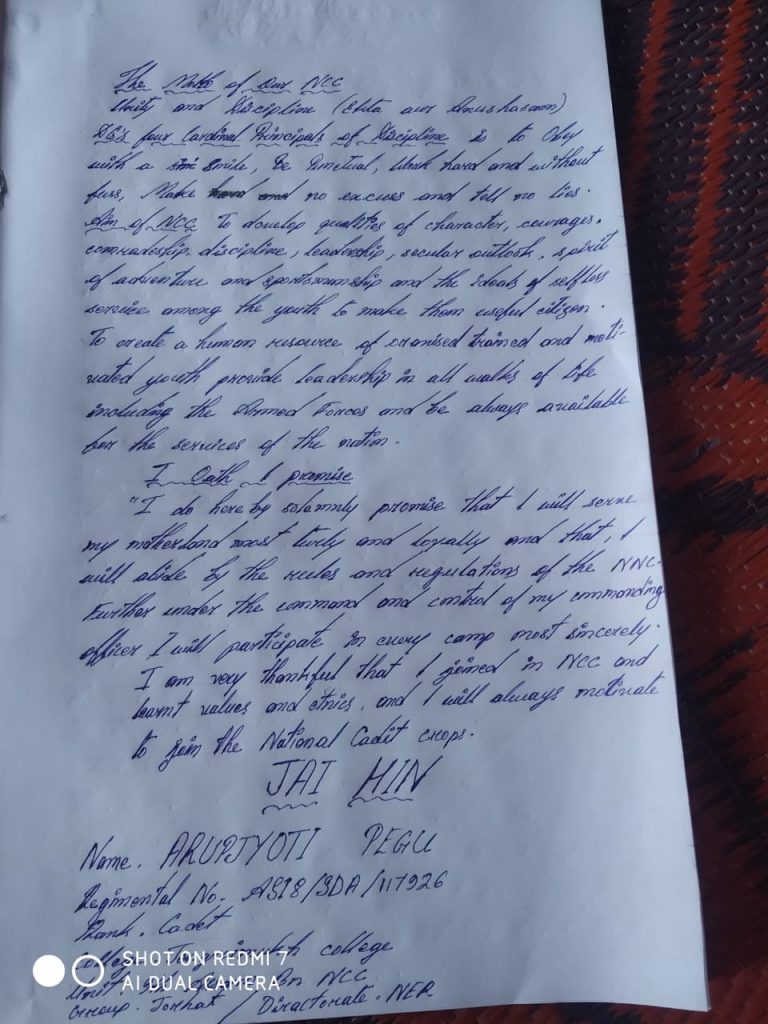 The Motto of Our NCC
Unity and Discipline (Ekta aur Anushasan)
DG's four Cardinal Principals of Discipline is to Obey
with a Smile, Be Puntual, Work hard and without
fuss, Make no excuses and tell no lies.
Aim of NCC To develop qualities of character, courages,
comradeship discipline, leadership, secular outlook, spirit
of adventure and sportsmanship and the ideals of selfless
service among the youth to make them useful citizen.
To create a human resource of oranised trained and moti-
vated youth provide leadership in all walks of life
including the Armed Forces and be always available
for the services of the nation.
I Oath I promise
"I do here by solemnly promise that I will serve
my motherland most turly and loyally and that, I
will abide by the rules and regulations of the NNC.
Further under the command and control of my commanding
officer I will participate in every camp most sincerely.
I am very thankful that I joined in NCC and
learnt values and ethics, and I will always motivate
to join the National Cadit crops.
JAI HIN
Name. ARUPJYOTI PEGU
Regimental No. AS18/SDA/117926
Rank. Cadet
college
Unit. Bn NCC
Group. Jorhat / Diractorate. NER
SHOT ON REDMI 7
AI DUAL CAMERA